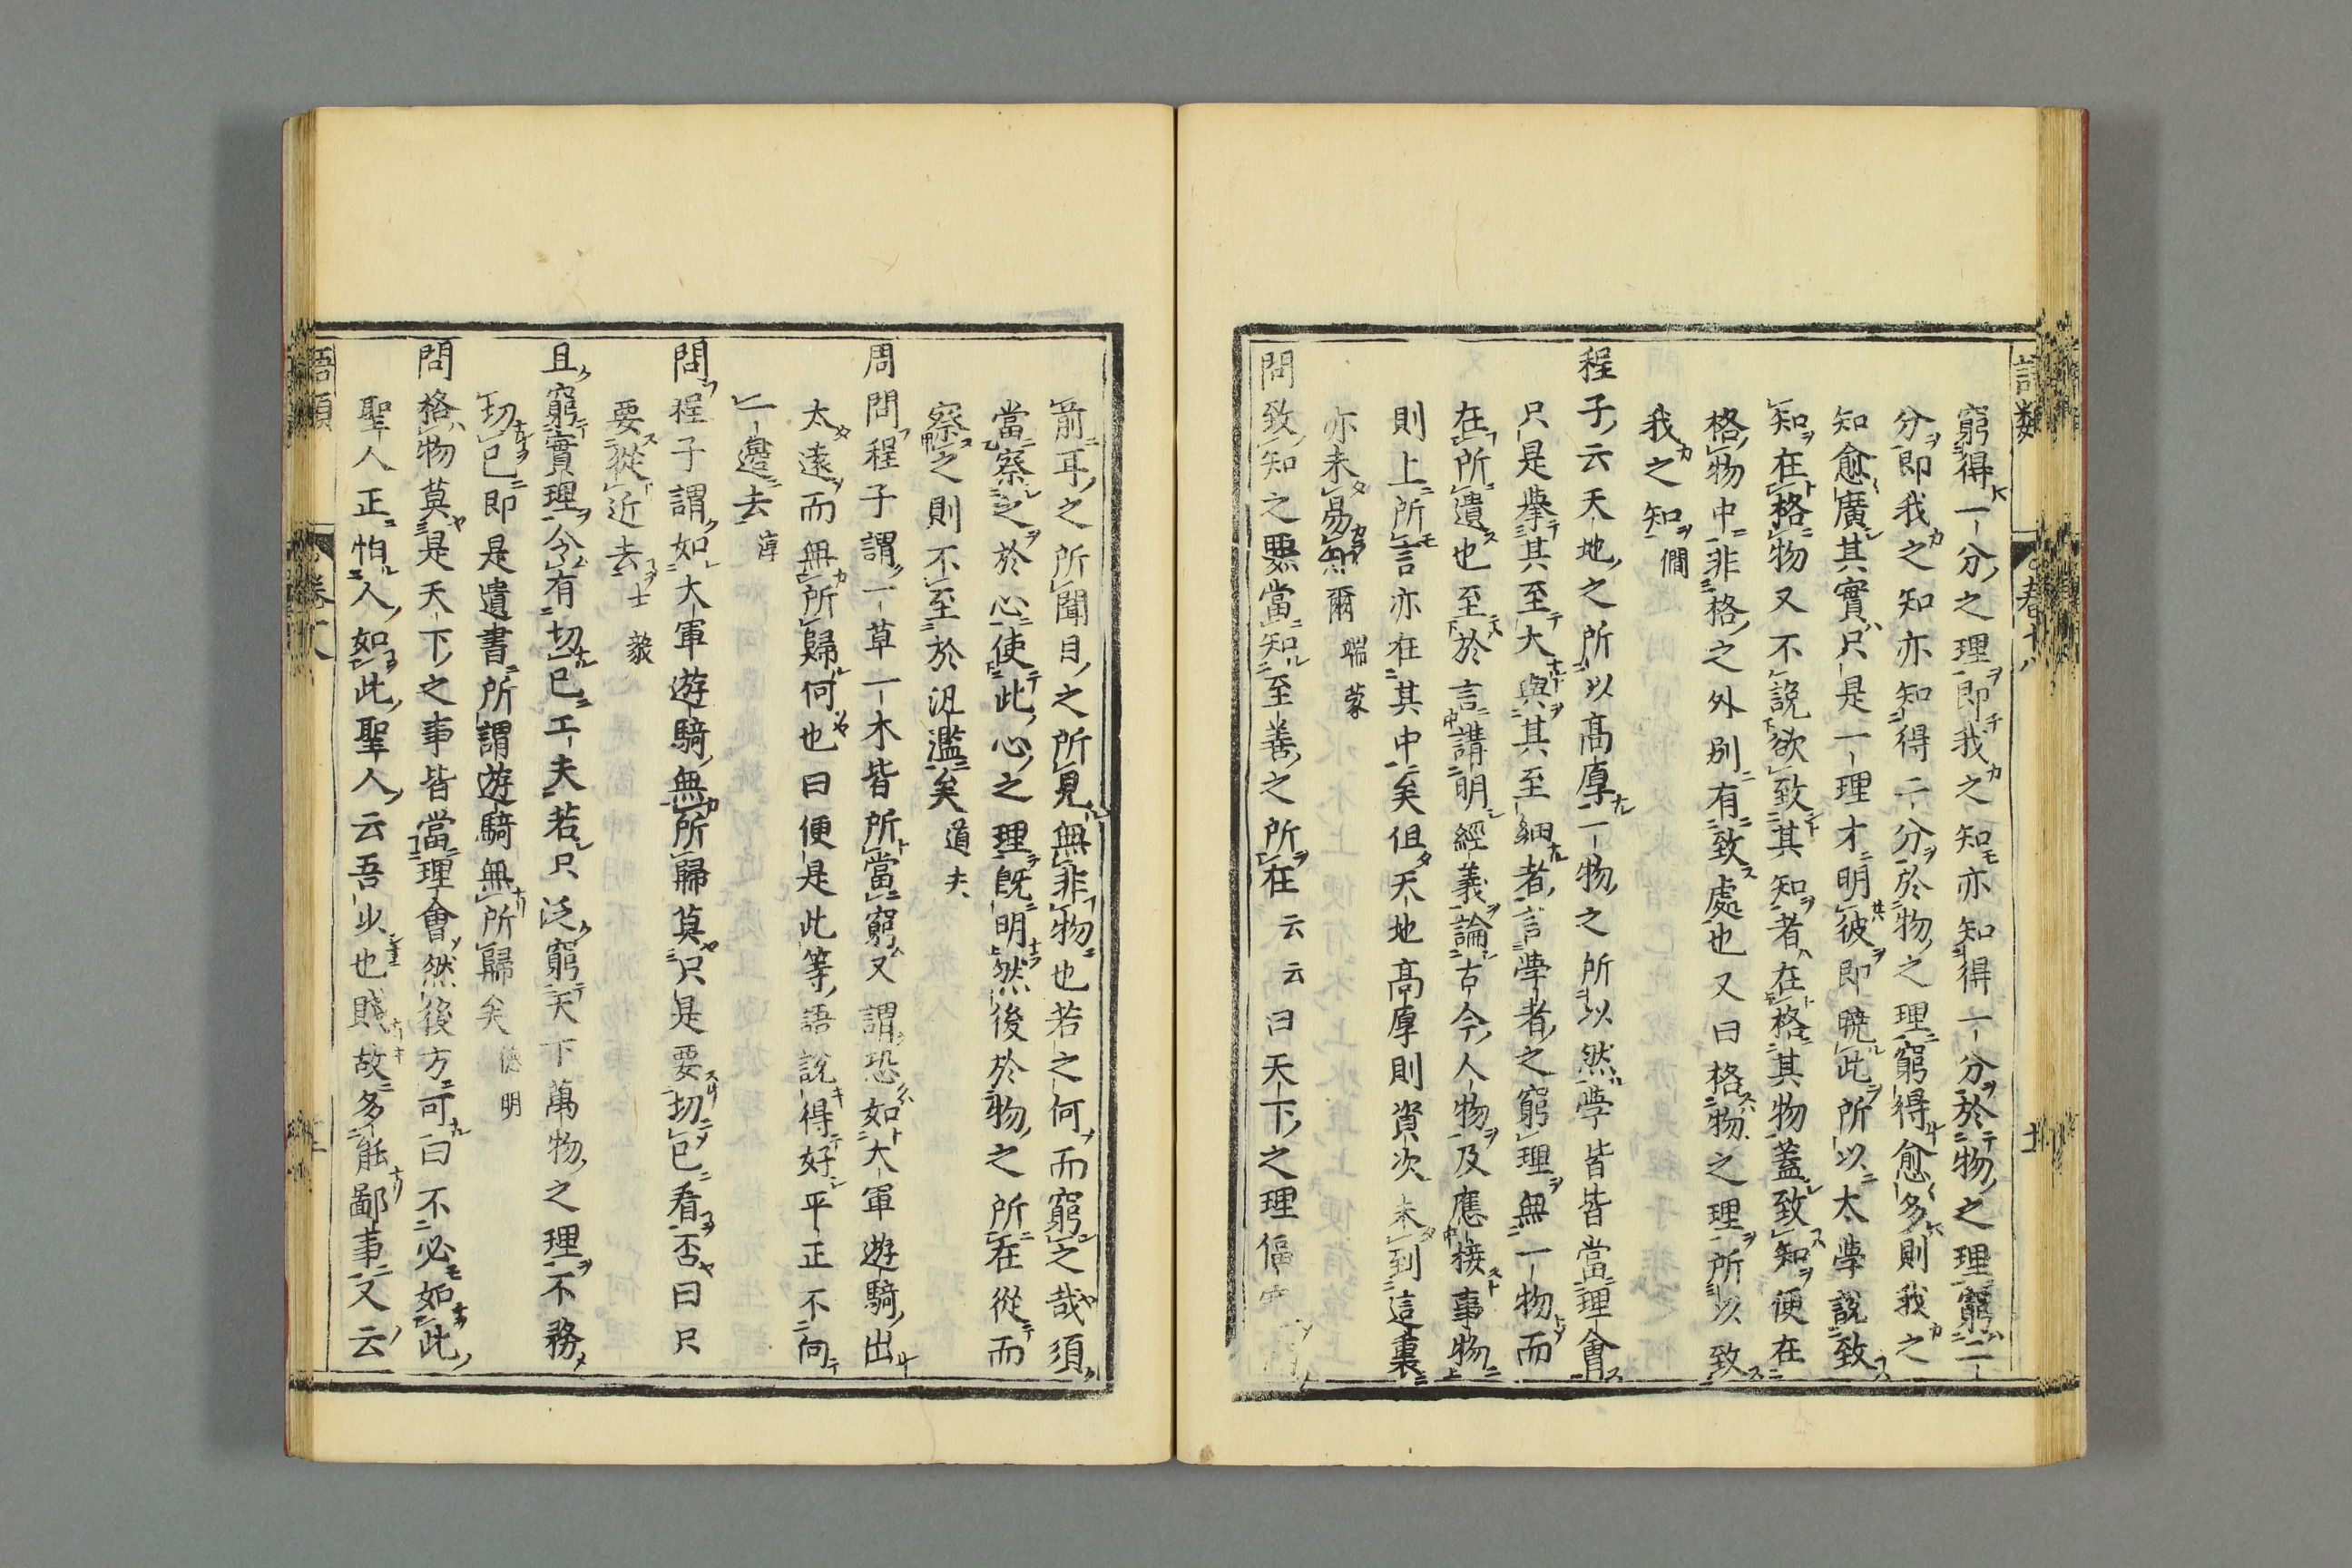 語類
卷十八
窮得一分之理即我之知亦知得一分於物之理窮二
分即我之知亦知得二分於物之理窮得愈多則我之
知愈廣其實只是一理才明彼即曉此所以大學說致
知在格物又不說欲致其知者在格其物蓋致知便在
格物中非格之外別有致處也又曰格物之理所以致
我之知僩
程子云天地之所以高厚一物之所以然學者皆當理會
只是舉其至大與其至細者言學者之窮理無一物而
在所遺也至於言講明經義論古今人物及應接事物
則上所言亦在其中矣但天地高厚則資次未到這裏
亦未易知爾端蒙
問致知之要當知至善之所在云云曰天下之理偪
前耳之所聞目之所見無非物也若之何而窮之哉須
當察之於心使此心之理既明然後於物之所在從而
察之則不至於汎濫矣道夫
周問程子謂一草一木皆所當窮又謂恐如大軍遊騎出
太遠而無所歸何也曰便是此等語說得好平正不向
一邊去淳
問程子謂如大軍遊騎無所歸莫只是要切己看否曰只
要從近去士毅
且窮實理令有切己工夫若只泛窮天下萬物之理不務
切己即是遺書所謂遊騎無所歸矣德明
問格物莫是天下之事皆當理會然後方可曰不必如此
聖人正怕人如此聖人云吾少也賤故多能鄙事又云
語類
卷十八